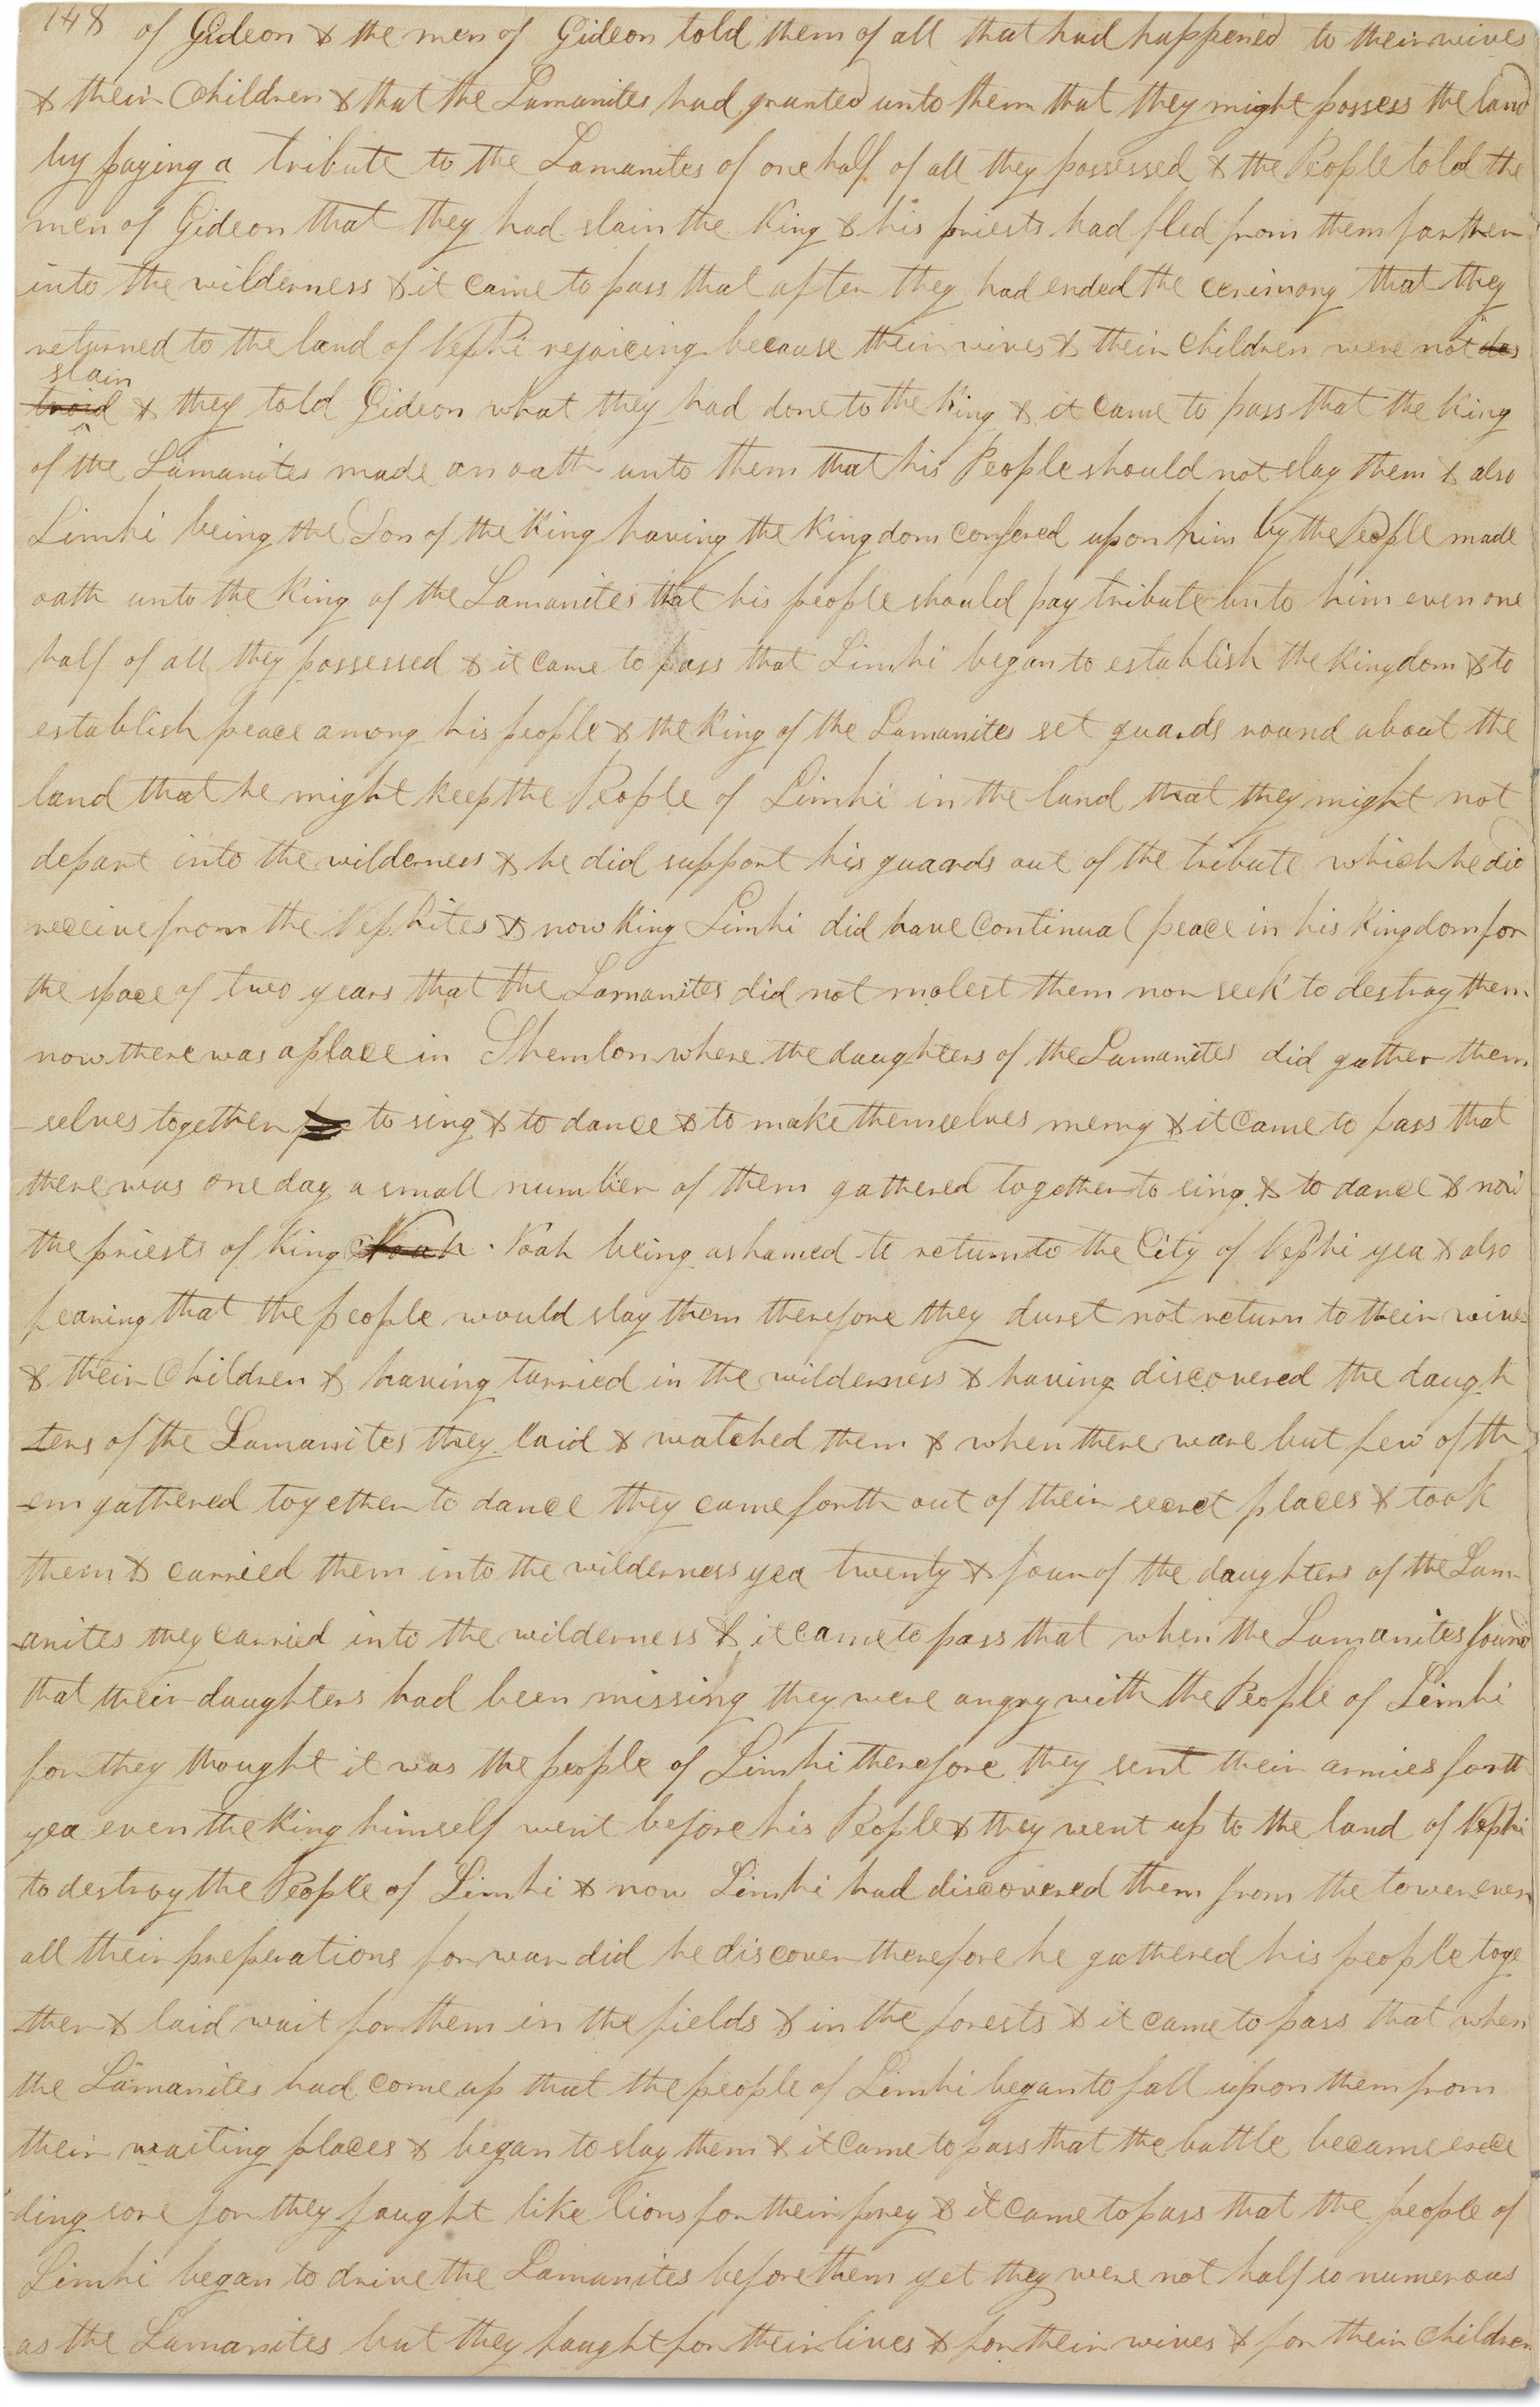 148 of Gideon & the men of Gideon told them of all that had happened to their wives
& their Children & that the Lamanites had granted unto them that they might possess the land
by paying a tribute to the Lamanites of one half of all they possessed & the People told the
men of Gideon that they had slain the King & his priests had fled from them farther
into the wilderness & it came to pass that after they had ended the cerimony that they
returned to the land of Nephi rejoicing because their wives & their Children were not des
slain
troid & they told Gideon what they had done to the King & it came to pass that the King
of the Lamanites made an oath unto them that his People should not slay them & also
Limhi being the Son of the King having the Kingdom confered upon him by the People made
oath unto the King of the Lamanites that his people should pay tribute unto him even one
half of all they possessed & it came to pass that Limhi began to establish the Kingdom & to
establish peace among his people & the King of the Lamanites set guards round about the
land that he might keep the People of Limhi in the land that they might not
depart into the wilderness & he did support his guards out of the tribute which he did
receive from the Nephites & now King Limhi did have continual peace in his Kingdom for
the space of two years that the Lamanites did not molest them nor seek to destroy them
now there was a place in Shemlon where the daughters of the Lamanites did gather them
-selves together to sing & to dance & to make themselves merry & it came to pass that
there was one day a small number of them gathered together to sing & to dance & now
the priests of King Noah Noah being ashamed to return to the City of Nephi yea & also
fearing that the people would slay them therefore they durst not return to their wives
& their Children & having tarried in the wilderness & having discovered the daugh
-ters of the Lamanites they laid & watched them & when there ware but few of th
-em gathered together to dance they came forth out of their secret places & took
them & carried them into the wilderness yea twenty & four of the daughters of the Lam-
-anites they carried into the wilderness & it came to pass that when the Lamanites found
that their daughters had been missing they were angry with the People of Limhi
for they thought it was the people of Limhi therefore they sent their armies forth
yea even the King himself went before his People & they went up to the land of Nephi
to destroy the People of Limhi & now Limhi had discovered them from the tower even
all their preperations for war did he discover therefore he gathered his people toge
-ther & laid wait for them in the fields & in the forests & it came to pass that when
the Lamanites had come up that the people of Limhi began to fall upon them from
their waiting places & began to slay them & it came to pass that the battle became exce
-ding sore for they faught like lions for their prey & it came to pass that the people of
Limhi began to drive the Lamanites before them yet they were not half so numerous
as the Lamanites but they faught for their lives & for their wives & for their children